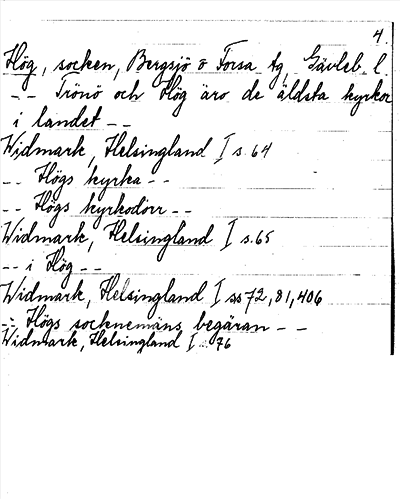 4.
Hög, socken, Bergsjö o Forsa tg, Gävleb. l.
-- Trönö och Hög äro de äldsta kyrkor
i landet --
Widmark, Helsingland I s. 64
-- Högs kyrka --
-- Högs kyrkodörr --
Widmark, Helsingland I s. 65
-- i Hög --
Widmark, Helsingland I ss 72, 81, 406
-- Högs socknemäns begäran --
Widmark, Helsingland I s. 76